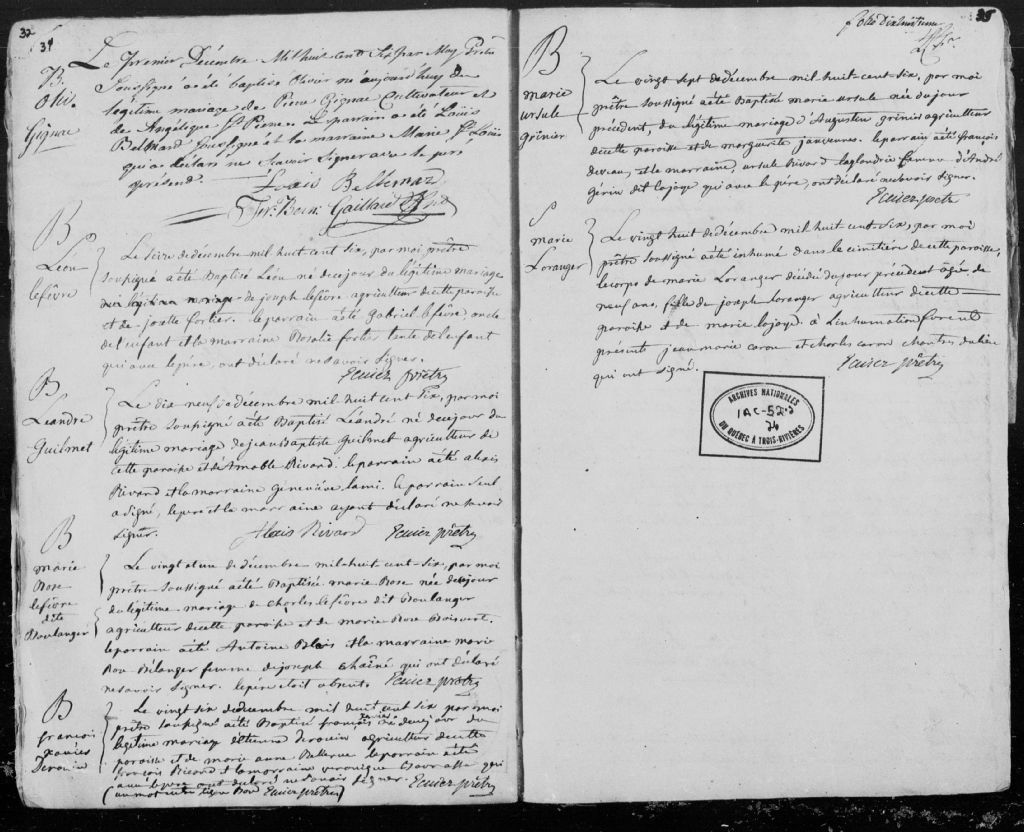 32
34
B.
Oliv.
Gignac
Le premier Décembre Mil huit cent Six par Moy Prêtre
Soussigné a été baptisé Olivier né aujourd'huy du
légitime mariage de Pierre Gignac Cultivateur et
de Angélique St Pierre. Le parrain a été Louis
Bellmard soussigné et la marraine Marie St Louis
qui a déclaré ne Scavoir Signer avec le père
présend.
Louis Bellemar
Frs. Gaillard
B
Léon
lefévre
Le seize dedécembre mil huit cent six, par moi prêtre
soussigné aété Baptisé Léon né decejour du légitime mariage
du légitime mariage de joseph lefévre agriculteur decette paroisse
et de josette fortier. le parrain aété Gabriel lefévre, oncle
del'enfant et la marraine Rosalie fortier tante del'enfant
qui avec lepère, ont déclaré nesavoir signer.
Ecuier prêtre
B
Léandre
Guilmet
Le dix neuf dedécembre mil huit cent six, par moi
prêtre soussigné aété Baptisé Léandré né decejour du
légitime mariage dejean Baptiste Guilmet agriculteur de
cette paroisse et de Amable Rivard. le parrain aété alexis
Rivard et la marraine Geneviéve lami. le parrain seul
a signé, lepere et la marraine ayant déclaré ne savoir
signer.
Alexis Rivard Ecuier prêtre
B
marie
Rose
lefévre
dite
Boulanger
Le vingt et un de décembre mil-huit cent-six, par moi
prêtre soussigné aété Baptisée marie Rose née decejour
du légitime mariage de Charles lefévre dit Boulanger
agriculteur decette paroisse et de marie Rose Boisvert.
le parrain aété Antoine Blais et la marraine marie
Rose Bélanger femme de joseph Chaîné qui ont déclaré
nesavoir signer. lepère étoit absent. Ecuier prêtre
B
françois
xavier
Derouin
Le vingt six dedécembre mil huit cent six par moi
prêtre soussigné aété Baptisé françois xavier né decejour du
légitime mariage d'étienne Derouin agriculteur decette
paroisse et de marie anne Bellerive le parrain aété
françois Ricard et la marraine veronique qui
avec le pere ont declaré nesavoir signer. Ecuier prêtre
(un mot entre ligne Bon Ecuier prêtre)
folio Dixhuitieme
35
B
marie
ursule
Grinier
Le vingt sept dedécembre mil huit-cent-six, par moi
prêtre soussigné aété Baptisée marie ursule née dujour
précédent, du légitime mariage d'Augustin grinié agriculteur
decette paroisse et de marguerite janvenne. le parrain aété françois
deveau, et la marraine, ursule Rivard laglandrie femme d'André
Gérin dit lajoye qui avec le pére, ont déclaré nesavoir signer.
Ecuier prêtr
S
marie
Loranger
Le vingt huit dedécembre mil huit cent-six, par moi
prêtre soussigné aété inhumé dans le cimetière de cette paroisse,
le corps de marie Loranger décédée du jour précédent âgée de
neuf ans, fille de joseph Loranger agriculteur decette
paroisse et de marie lajoye. à L'inhumation furent
présents jean marie caron et charles caron chantres du lieu
qui ont signé. Ecuier prêtre
ARCHIVES NATIONALES
1AC-52
76
DU QUÉBEC À TROIS-RIVIÈRES